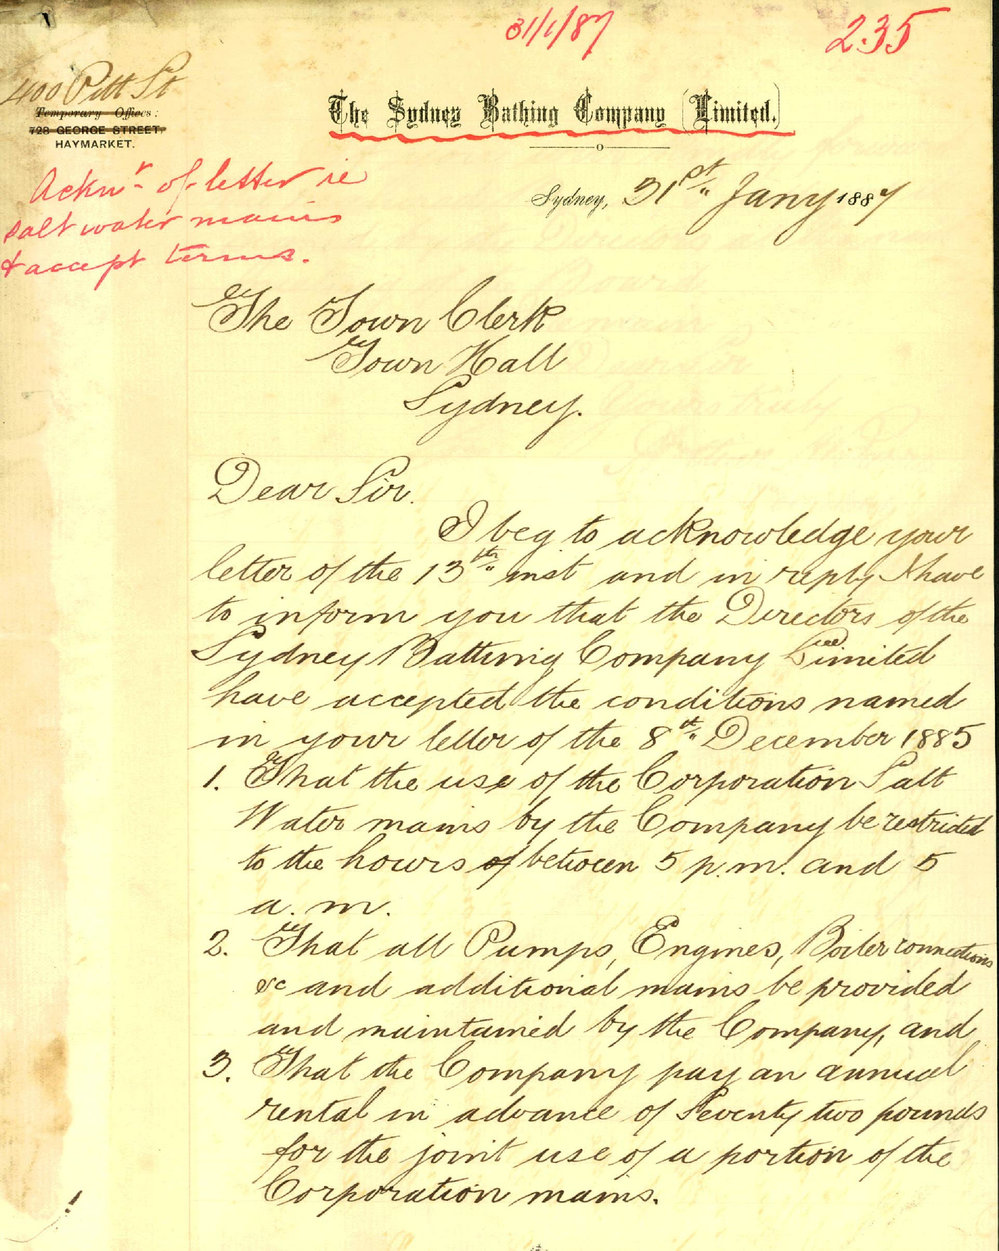 31/1/87
235
400 Pitt St
Temporary Offices:
728 GEORGE STREET,
HAYMARKET.
The Sydney Bathing Company (Limited.)
Sydney, 31st Jany 1887
Acknt of letter re
salt water mains
& accept terms.
The Town Clerk
Town Hall
Sydney.
Dear Sir.
I beg to acknowledge your
letter of the 13th inst and in reply I have
to inform you that the Directors of the
Sydney Bathing Company Limited
have accepted the conditions named
in your letter of the 8th December 1885
1. That the use of the Corporation Salt
Water mains by the Company be restricted
to the hours of between 5 p.m. and 5
a.m.
2. That all Pumps, Engines, Boiler connections
&c and additional mains be provided
and maintained by the Company, and
3. That the Company pay an annual
rental in advance of Seventy two pounds
for the joint use of a portion of the
Corporation mains.